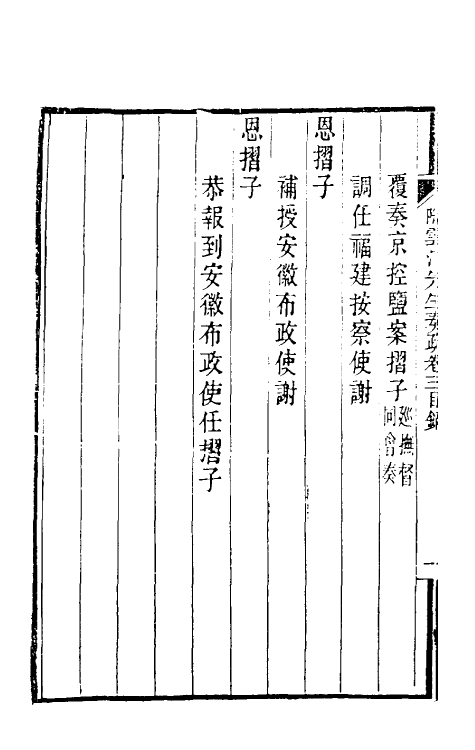 陶雲汀先生奏疏卷三目錄
一
覆奏京控鹽案摺子巡撫督同會奏
調任福建按察使謝
恩摺子
補授安徽布政使謝
恩摺子
恭報到安徽布政使任摺子